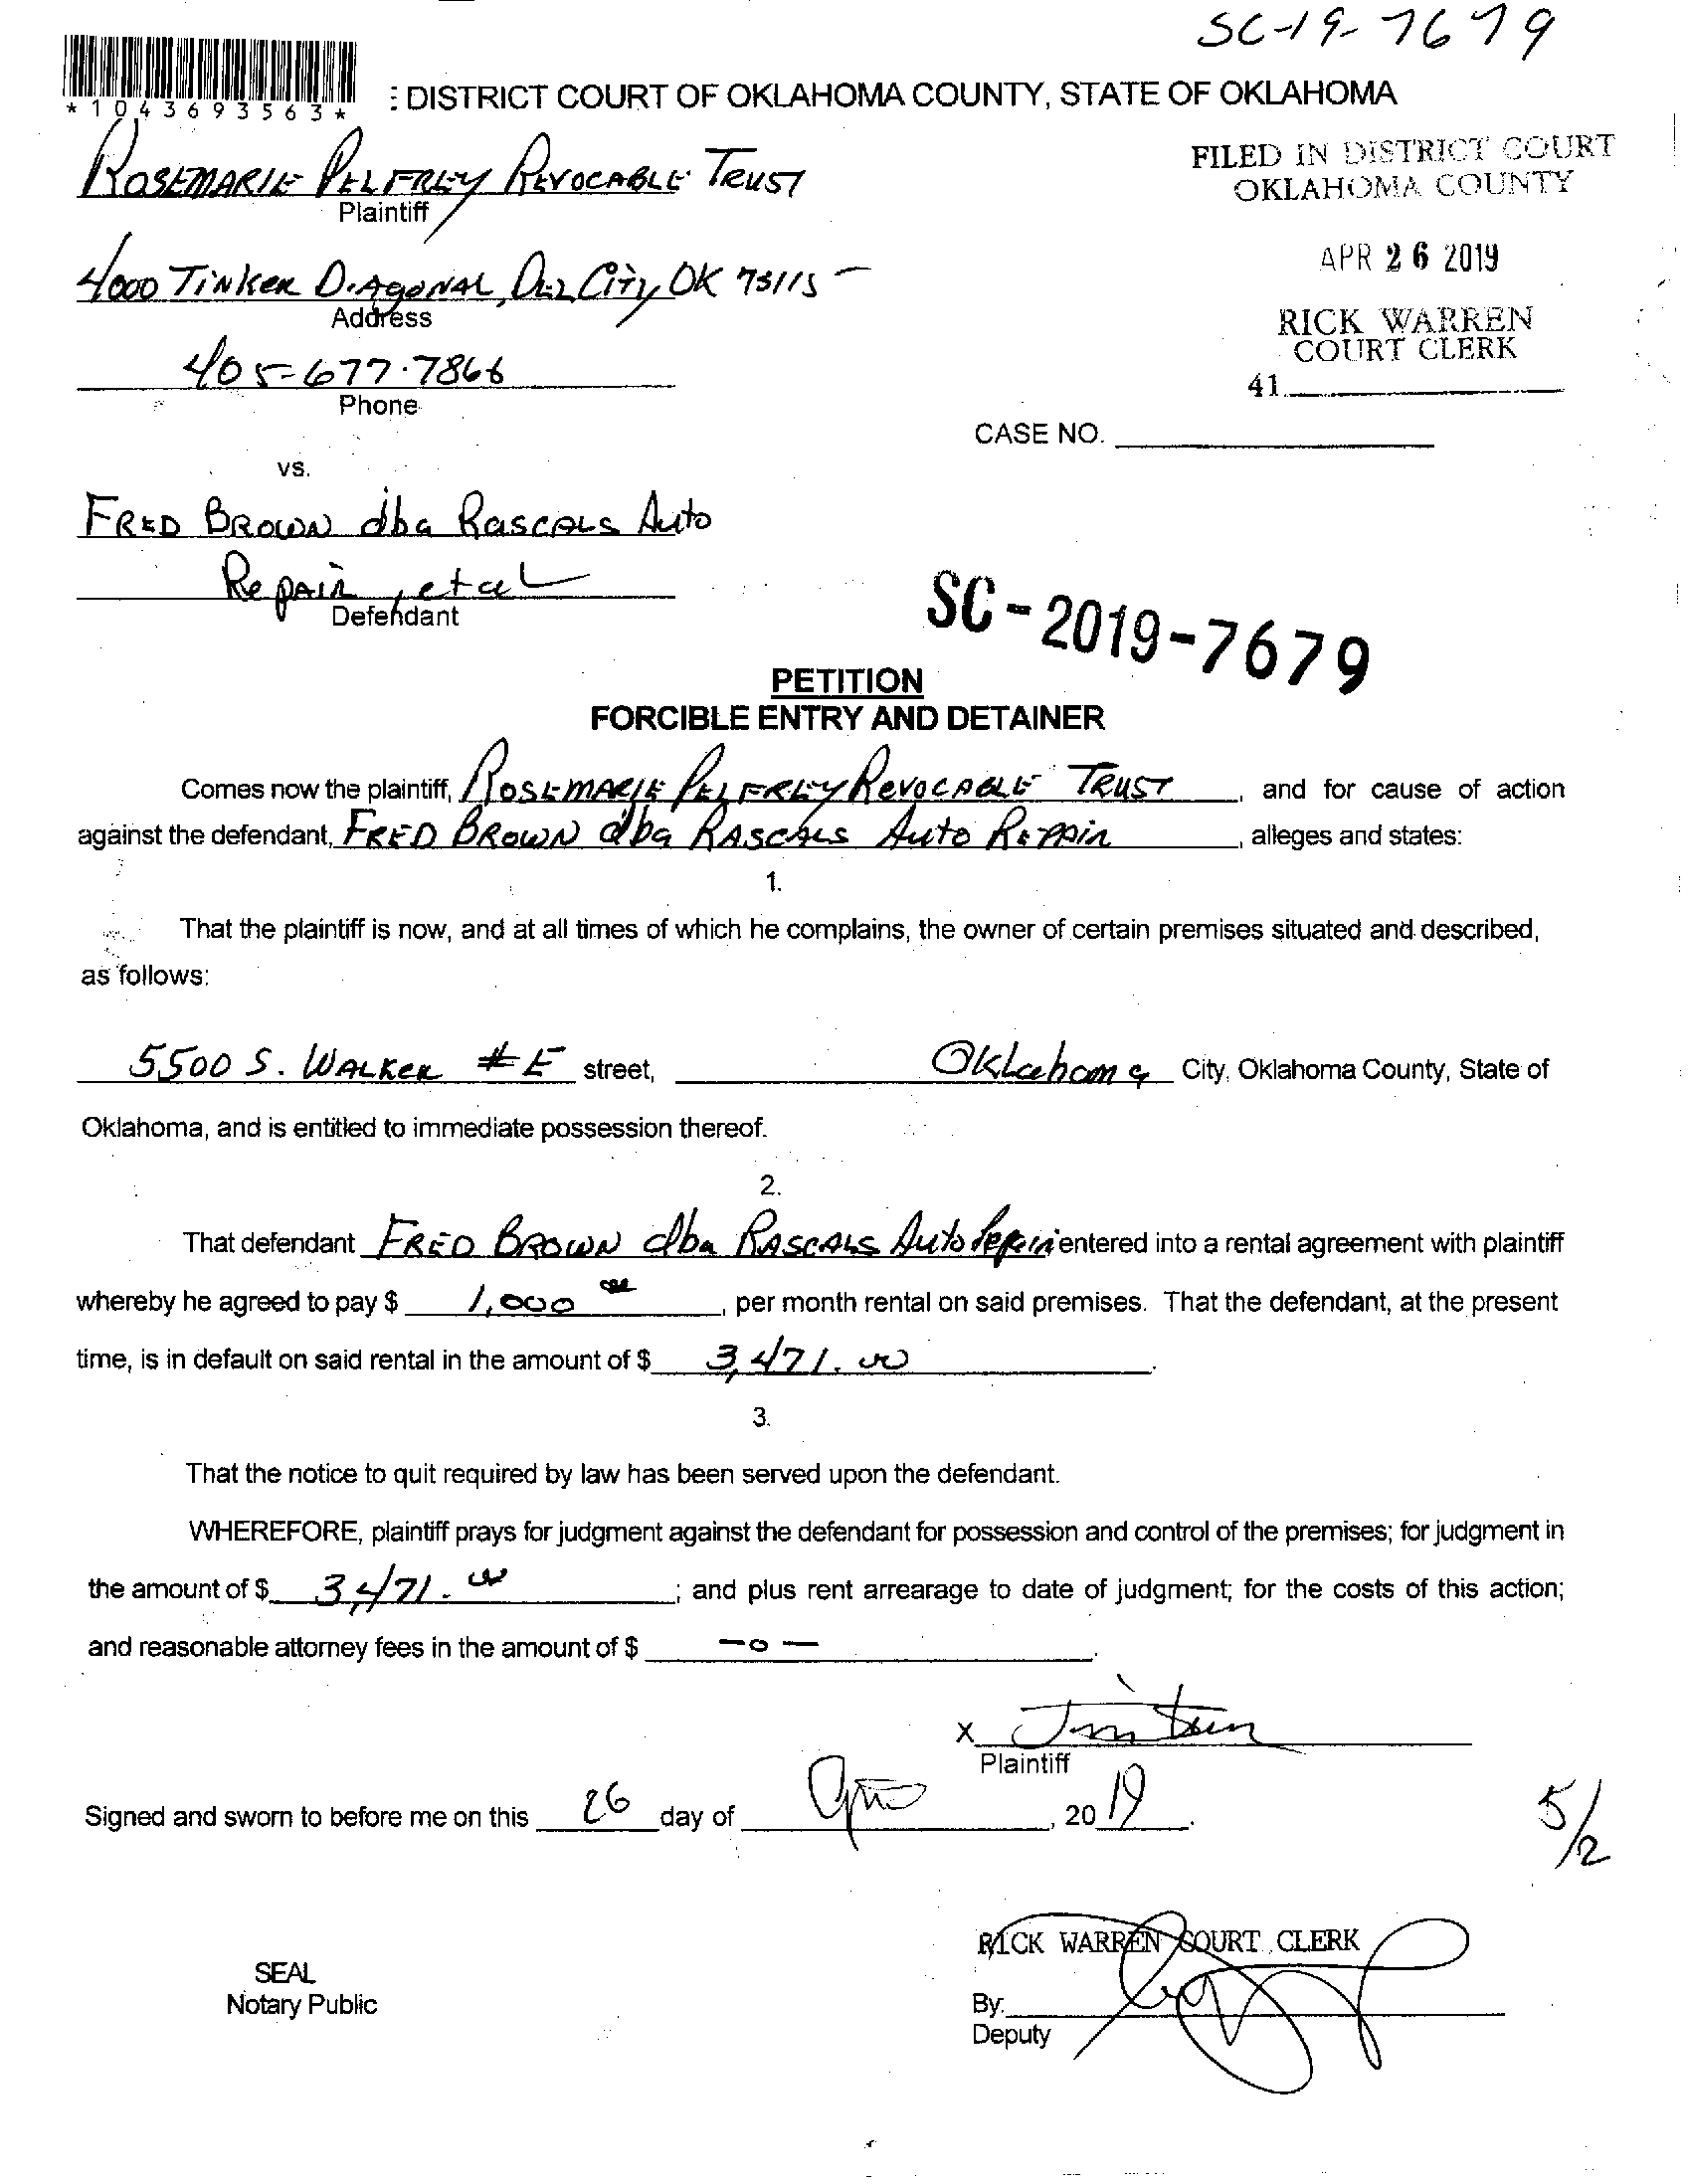 SC-19-7679
*1043693563*
: DISTRICT COURT OF OKLAHOMA COUNTY, STATE OF OKLAHOMA
ROSEMARIE PELFREY REVOCABLE TRUST
Plaintiff
FILED IN DISTRICT COURT
OKLAHOMA COUNTY
4000 TINKER DIAGONAL, DEL CITY, OK 73115
Address
APR 26 2019
RICK WARREN
COURT CLERK
405-677-7866
Phone
41
CASE NO.
vs.
FRED BROWN dba RASCALS Auto
Repair, et al
Defendant
SC-2019-7679
PETITION
FORCIBLE ENTRY AND DETAINER
Comes now the plaintiff, ROSEMARIE PELFREY REVOCABLE TRUST, and for cause of action
against the defendant, FRED BROWN dba RASCALS Auto REPAIR, alleges and states:
1.
That the plaintiff is now, and at all times of which he complains, the owner of certain premises situated and described,
as follows:
5500 S. WALKER #E street, Oklahoma City, Oklahoma County, State of
Oklahoma, and is entitled to immediate possession thereof.
2.
That defendant FRED BROWN dba RASCALS Auto Repair entered into a rental agreement with plaintiff
whereby he agreed to pay $ 1,000 00, per month rental on said premises. That the defendant, at the present
time, is in default on said rental in the amount of $ 3,471.00.
3.
That the notice to quit required by law has been served upon the defendant.
WHEREFORE, plaintiff prays for judgment against the defendant for possession and control of the premises; for judgment in
the amount of $ 3,471.00; and plus rent arrearage to date of judgment; for the costs of this action;
and reasonable attorney fees in the amount of $ -0-.
X
Plaintiff
Signed and sworn to before me on this 26 day of , 20 19.
5/2
RICK WARREN COURT CLERK
SEAL
Notary Public
By:
Deputy